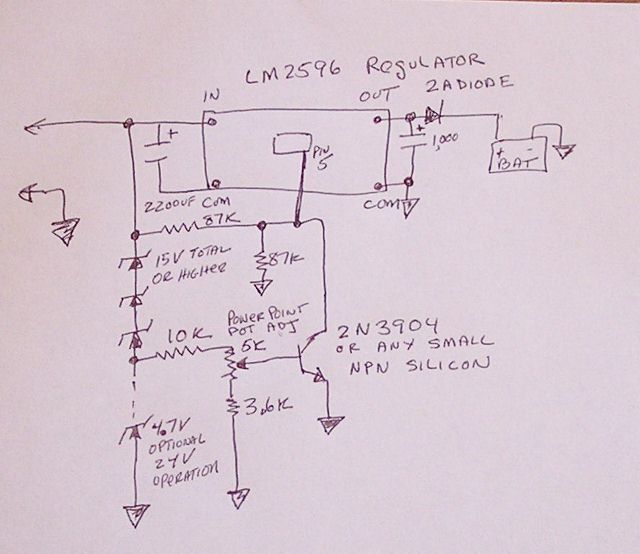 LM2596 REGULATOR
IN
OUT
2A DIODE
+
+
1,000
PIN
5
+ -
BAT
2200UF COM
COM
87K
15V TOTAL
OR HIGHER
87K
POWERPOINT
POT ADJ
10K
5K
2N3904
OR ANY SMALL
NPN SILICON
3.6K
4.7V
OPTIONAL
24V
OPERATION